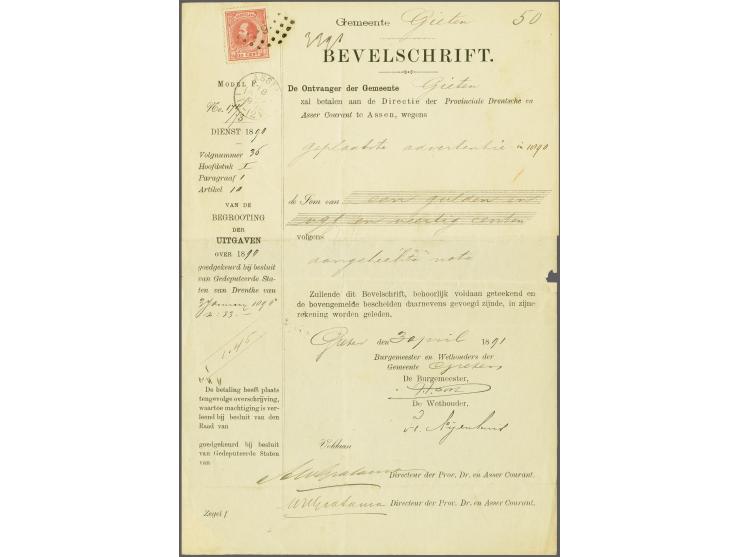 Gemeente Gieten 50
BEVELSCHRIFT.
MODEL F.
ASSEN
No.
DIENST 1890
Volgnummer 36
Hoofdstuk I
Paragraaf 1
Artikel 10
VAN DE
BEGROOTING
DER
UITGAVEN
OVER 1890
goedgekeurd bij besluit
van Gedeputeerde Sta-
ten van Drenthe van
De betaling heeft plaats
tengevolge overschrijving,
waartoe machtiging is ver-
leend bij besluit van den
Raad van
goedgekeurd bij besluit
van Gedeputeerde Staten
van
Zegel f
De Ontvanger der Gemeente Gieten
zal betalen aan de Directie der Provinciale Drentsche en
Asser Courant te Assen, wegens
geplaatste advertentie in 1890
de Som van een gulden en
vyf en veertig centen
volgens
aangehechte nota
Zullende dit Bevelschrift, behoorlijk voldaan geteekend en
de bovengemelde bescheiden daarnevens gevoegd zijnde, in zijne
rekening worden geleden.
Gieten den 3 april 1891
Burgemeester en Wethouders der
Gemeente Gieten
De Burgemeester,
De Wethouder,
Nijenhuis
Voldaan
Directeur der Prov. Dr. en Asser Courant.
Directeur der Prov. Dr. en Asser Courant.